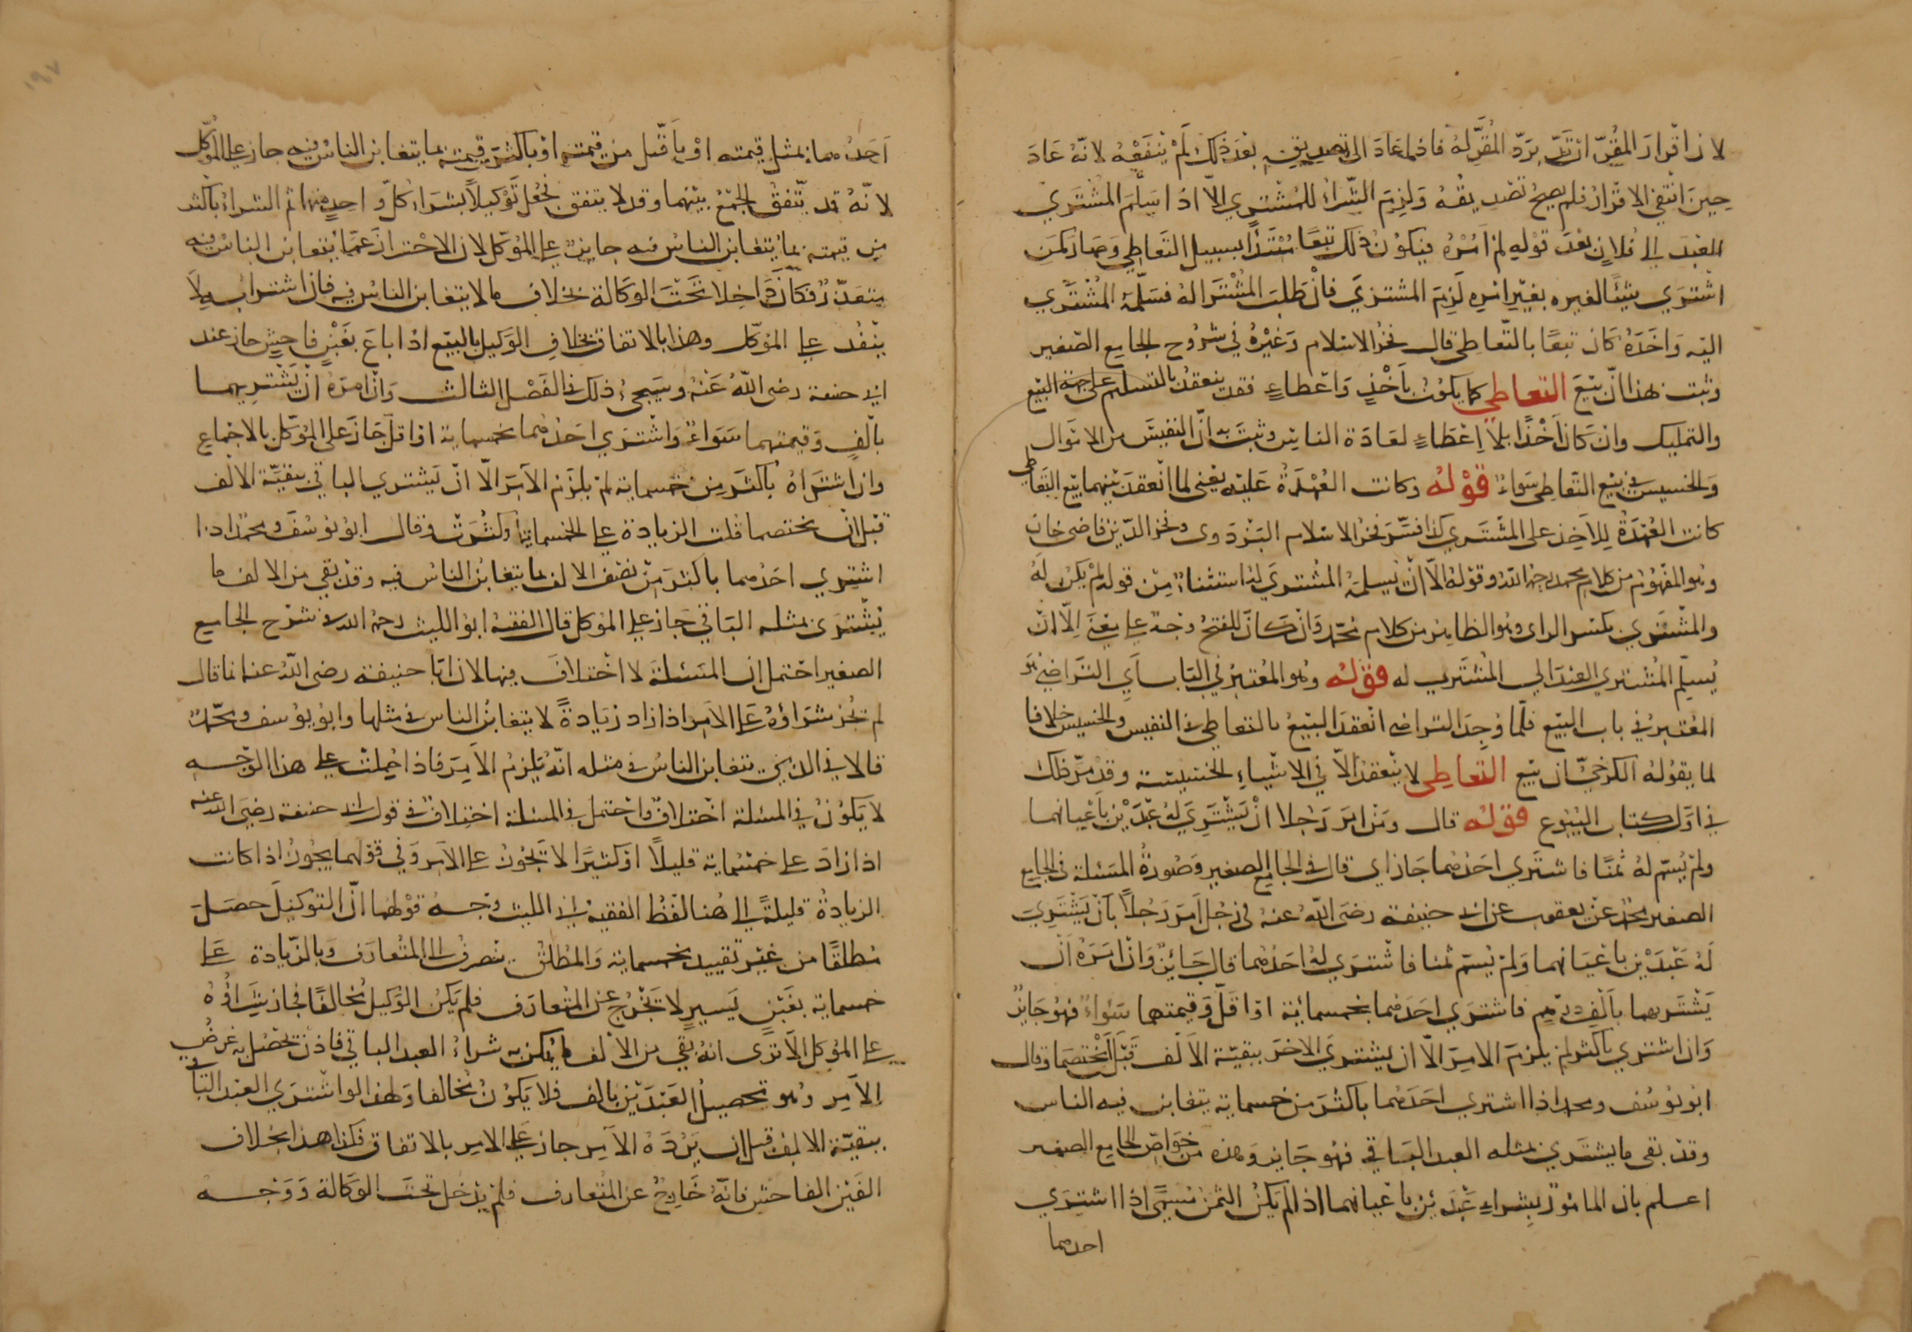 لان اقرار المقر ارتد برد المقر له فاذا عاد الى تصديقه بعد ذلك لم ينفعه لانه عاد
حين انتفى الاقرار فلم يصح تصديقه ولزم الشراء للمشتري الا اذا سلم المشتري
العبد الى فلان بعد قوله لم آمره فيكون ذلك بيعا مبتدأ بسبيل التعاطي وصار كمن
اشترى شيئا لغيره بغير امره لزم المشتري فان طلب المشترا له فسلمه المشتري
اليه واخذه كان بيعا بالتعاطي قال فخر الاسلام وغيره في شروح الجامع الصغير
وثبت بهذا ان بيع التعاطي كما يكون باخذ واعطاء فقد ينعقد بالتسليم على جهة البيع
والتمليك وان كان اخذا بلا اعطاء لعادة الناس وثبت به ان النفيس من الاموال
والخسيس في بيع التعاطي سواء قوله وكانت العهدة عليه يعني لما انعقد بينهما بيع التعاطي
كانت العهدة للآخذ على المشتري كذا فسر فخر الاسلام البزدوى وفخر الدين قاضي خان
وهو المفهوم من كلام محمد رحمه الله وقوله الا ان يسلمه المشتري له استثناء من قوله لم يكن له
والمشتري بكسر الراى وهو الظاهر من كلام محمد وان كان للفتح وجه على معنى الا ان
يسلم المشتري العبد الى المشترى له قوله وهو المعتبر في الباب اي التراضي هو
المعتبر في باب البيع فلما وجد التراضي انعقد البيع بالتعاطي في النفيس والخسيس خلافا
لما يقوله الكرخي ان بيع التعاطي لا ينعقد الا في الاشياء الخسيسة وقد مر ذلك
في اول كتاب البيوع قوله قال ومن امر رجلا ان يشتري له عبدين باعيانهما
ولم يسم له ثمنا فاشترى احدهما جاز اي قال في الجامع الصغير وصورة المسئلة في الجامع
الصغير محمد عن يعقوب عن ابي حنيفة رضي الله عنه في رجل امر رجلا بان يشتري
له عبدين باعيانهما ولم يسم ثمنا فاشترى له احدهما قال جائز وان امره ان
يشتريهما بالف درهم فاشترى احدهما بخمسمائة او اقل وقيمتهما سواء فهو جايز
وان اشترى باكثر لم يلزم الامر الا ان يشتري الاخر ببقية الالف قبل ان يختصما وقال
ابو يوسف ومحمد اذا اشترى احدهما باكثر من خمسماية يتغابن فيه الناس
وقد بقي ما يشتري بمثله العبد الباقي فهو جايز وهذه من خواص الجامع الصغير
اعلم بان المامور بشراء عبدين باعيانهما اذا لم يكن الثمن مسمى اذا اشترى
احدهما
١٩٧
احدهما بمثل قيمته او باقل من قيمته او باكثر من قيمته بما يتغابن الناس فيه جاز على الموكل
لانه قد يتفق الجمع بينهما وقد لا يتفق فجعل توكيلا بشراء كل واحد منهما ثم الشراء باكثر
من قيمته بما يتغابن الناس فيه جايز على الموكل لان الاحتراز عما يتغابن الناس فيه
متعذر فكان داخلا تحت الوكالة بخلاف ما لا يتغابن الناس فيه فان اشترا به لا
ينفذ على الموكل وهذا بالاتفاق بخلاف الوكيل بالبيع اذا باع بغبن فاحش جاز عند
ابي حنيفة رضى الله عنه وسيجىء ذلك في الفصل الثالث وان امره ان يشتريهما
بالف وقيمتهما سواء واشترى احدهما بخمسماية او اقل جاز على الموكل بالاجماع
وان اشتراه باكثر من خمسماية لم يلزم الآمر الا ان يشتري الباقي ببقية الالف
قبل ان يختصما قلت الزيادة على الخمسماية او كثرت وقال ابو يوسف ومحمد اذا
اشترى احدهما باكثر من نصف الالف بما يتغابن الناس فيه وقد بقي من الالف ما
يشترى بمثله الباقي جاز على الموكل قال الفقيه ابو الليث رحمه الله في شرح الجامع
الصغير احتمل ان المسئلة لا اختلاف فيها لان ابا حنيفة رضى الله عنه انما قال
لم يجز شراؤه على الآمر اذا زاد زيادة لا يتغابن الناس في مثلها وابو يوسف ومحمد
قالا في الذي يتغابن الناس في مثله انه يلزم الآمر فاذا حملت على هذا الوجه
لا يكون في المسئلة اختلاف واحتمل في المسئلة اختلاف في قول ابي حنيفة رضي الله عنه
اذا زاد على خمسماية قليلا او كثيرا لا يجوز على الآمر وفي قولهما يجوز اذا كانت
الزيادة قليلة الى هنا لفظ الفقيه ابي الليث وجه قولهما ان التوكيل حصل
مطلقا من غير تقييد بخمسماية والمطلق ينصرف الى المتعارف وبالزيادة على
خمسماية بغبن يسير لا يخرج عن المتعارف فلم يكن الوكيل مخالفا فجاز شراؤه
على الموكل الا ترى انه بقي من الالف ما يمكن به شراء العبد الباقي فاذن يحصل به غرض
الآمر وهو تحصيل العبدين بالف فلا يكون مخالفا ولهذا لو اشترى العبد الباقي
ببقية الالف قبل ان يرده الآمر جاز على الآمر بالاتفاق فكذا هذا بخلاف
الغبن الفاحش فانه خارج عن المتعارف فلم يدخل تحت الوكالة ووجه